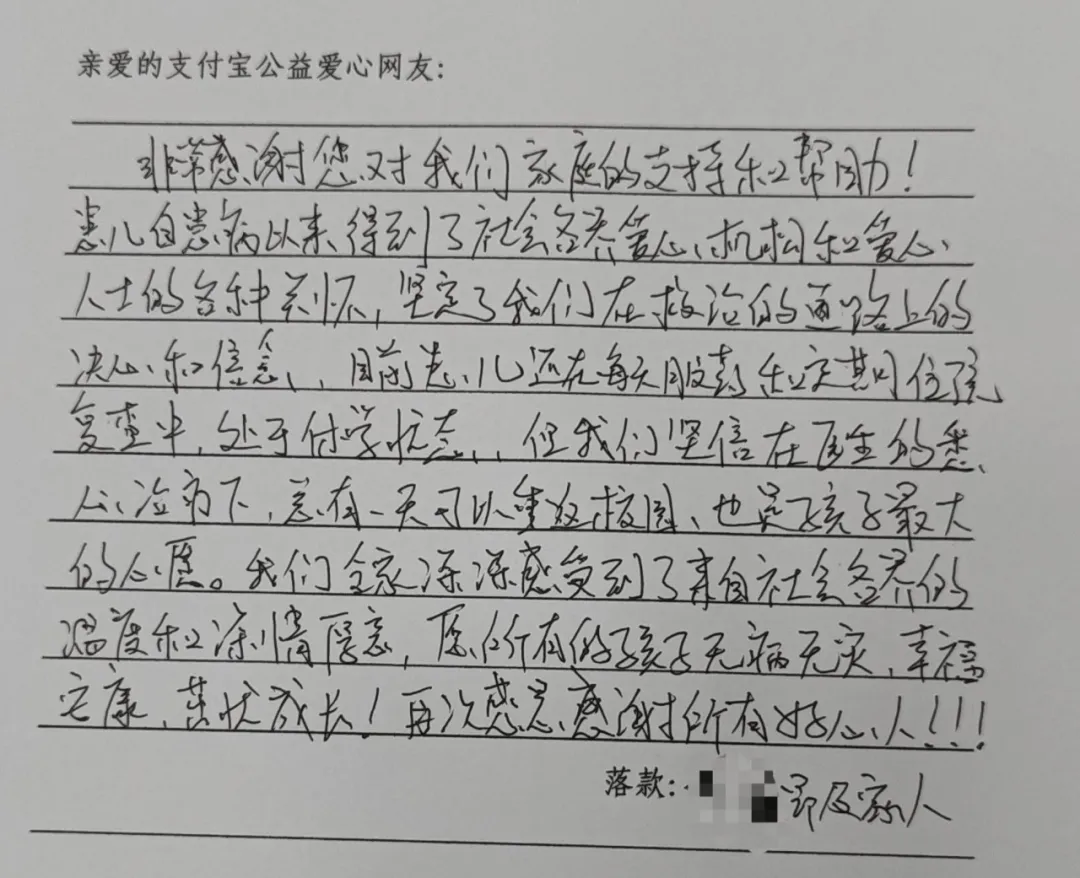 亲爱的支付宝公益爱心网友：
非常感谢您对我们家庭的支持和帮助！
患儿自患病以来得到了社会各界爱心机构和爱心
人士的各种关怀，坚定了我们在救治的道路上的
决心和信念，目前患儿还在每天服药和定期住院
复查中，处于休学状态，但我们坚信在医生的悉
心治疗下，总有一天可以重返校园，也是孩子最大
的心愿。我们全家深深感受到了来自社会各界的
温度和深情厚意，愿所有的孩子无病无灾，幸福
安康，茁状成长！再次感恩感谢所有好心人！！！
落款：及家人